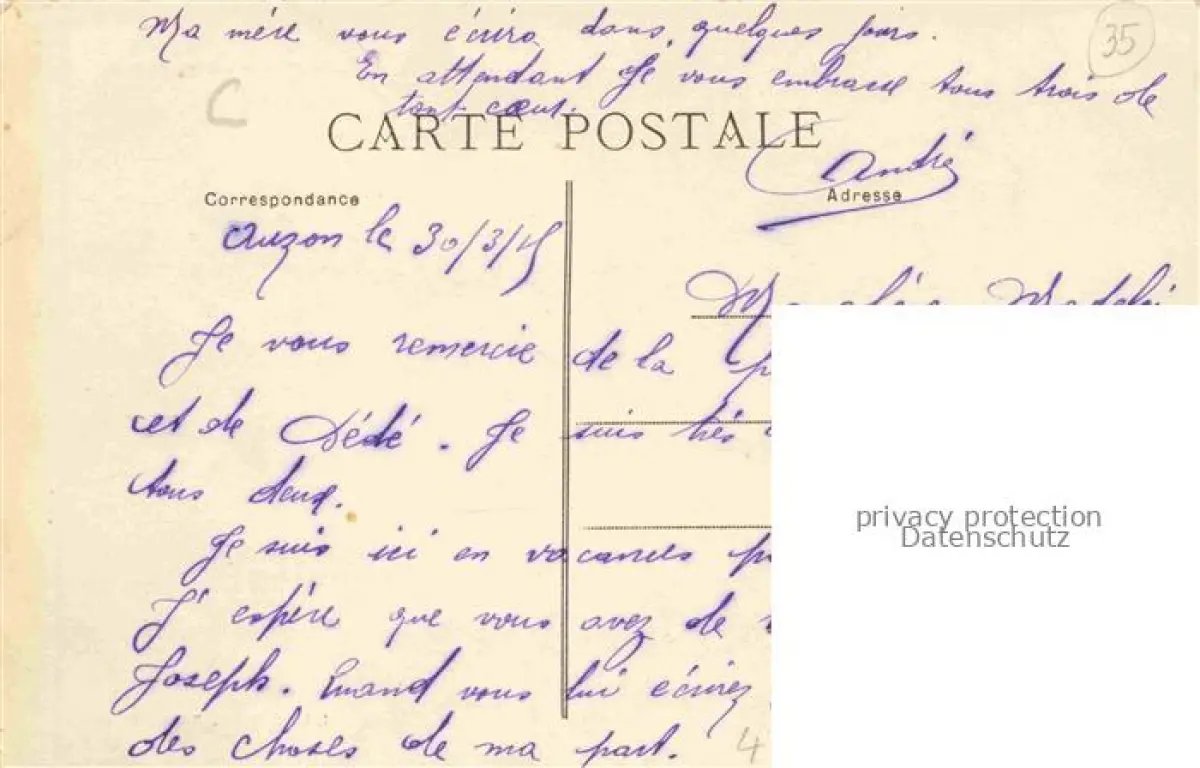 Ma mère vous écrira dans quelques jours.
En attendant Je vous embrasse tous trois de
tout cœur.
35
CARTE POSTALE
André
Correspondance
Adresse
Auzon le 30/3/15
Je vous remercie de la
et de Dédé. Je suis très
tous deux.
Je suis ici en vacances
J'espère que vous avez de
Joseph. Quand vous lui écrirez
des choses de ma part.
4
privacy protection
Datenschutz